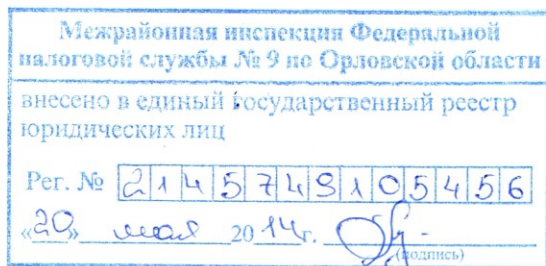 Межрайонная инспекция Федеральной
налоговой службы № 9 по Орловской области
внесено в единый государственный реестр
юридических лиц
Рег. № 2145749105456
«20» мая 2014г.
(подпись)